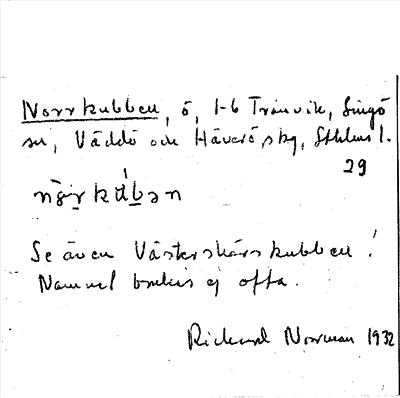 Norrkubben, ö, 1-6 Tranvik, Singö
sn, Väddö och Häverö skg, Sthlms l.
29
nòrkúbən
Se även Västerskärskubben!
Namnet brukas ej ofta.
Rickard Norrman 1932